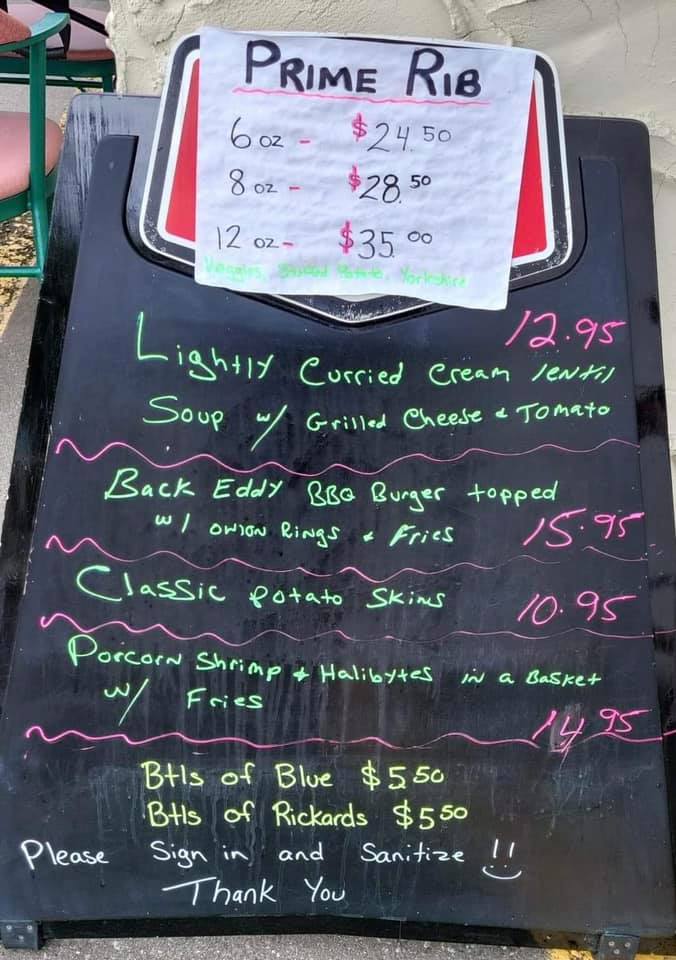 PRIME RIB
6 oz - $24.50
8 oz - $28.50
12 oz - $35.00
Veggies, Potato, Yorkshire
12.95
Lightly Curried Cream lentil
Soup w/ Grilled Cheese & Tomato
Back Eddy BBQ Burger topped
w/ onion Rings & Fries 15.95
Classic Potato Skins 10.95
Porcorn Shrimp & Halibytes in a Basket
w/ Fries
14.95
Btls of Blue $5.50
Btls of Rickards $5.50
Please Sign in and Sanitize !!
Thank You